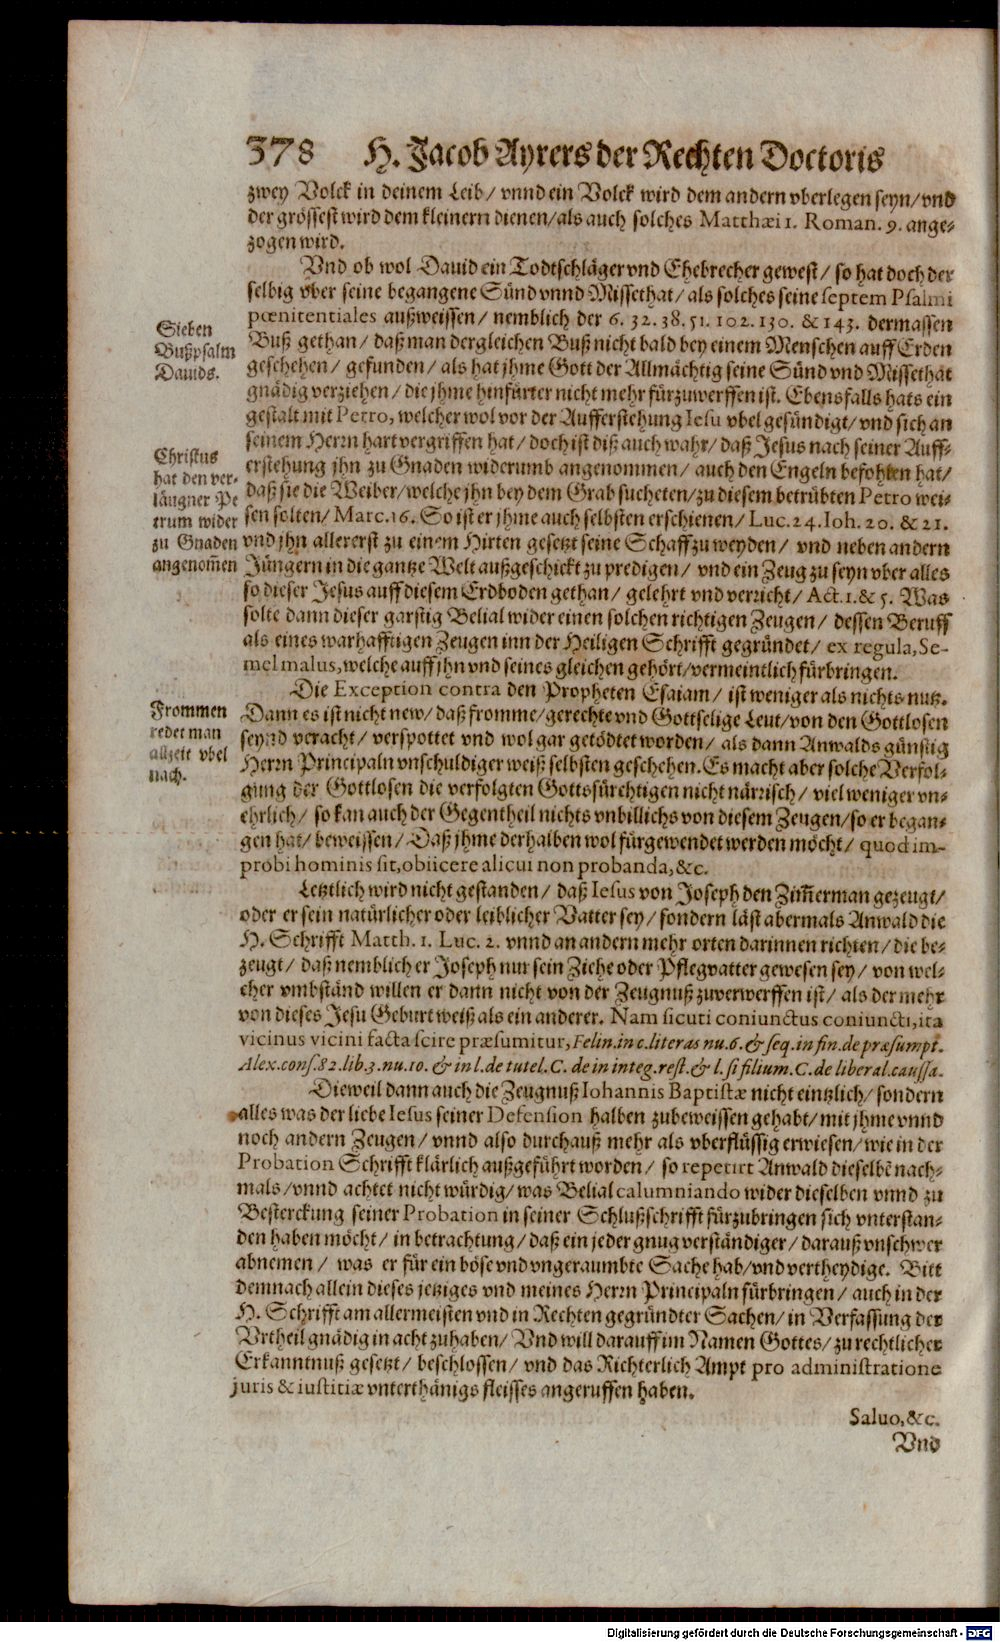 378 H. Jacob Ayrers der Rechten Doctoris
zwey Volck in deinem Leib/ vnnd ein Volck wird dem andern vberlegen seyn/ vnd
der grössest wird dem kleinern dienen/ als auch solches Matthæi 1. Roman. 9. ange-
zogen wird.
Vnd ob wol Dauid ein Todtschläger vnd Ehebrecher gewest/ so hat doch der
selbig vber seine begangene Sünd vnnd Missethat/ als solches seine septem Psalmi
pœnitentiales außweissen/ nemblich der 6. 32. 38. 51. 102. 130. & 143. dermassen
Sieben
Bußpsalm
Dauids.
Buß gethan/ daß man dergleichen Buß nicht bald bey einem Menschen auff Erden
geschehen/ gefunden/ als hat jhme Gott der Allmächtig seine Sünd vnd Missethat
gnädig verziehen/ die jhme hinfürter nicht mehr fürzuwerffen ist. Ebensfalls hats ein
gestalt mit Petro, welcher wol vor der Aufferstehung Iesu vbel gesündigt/ vnd sich an
seinem Herrn hart vergriffen hat/ doch ist diß auch wahr/ daß Jesus nach seiner Auff-
Christus
hat den ver-
läugner Pe
trum wider
zu Gnaden
angenom̃en
erstehung jhn zu Gnaden widerumb angenommen/ auch den Engeln befohlen hat/
daß sie die Weiber/ welche jhn bey dem Grab sucheten/ zu diesem betrübten Petro wei-
sen solten/ Marc. 16. So ist er jhme auch selbsten erschienen/ Luc. 24. Ioh. 20. & 21.
vnd jhn allererst zu einem Hirten gesetzt seine Schaff zu weyden/ vnd neben andern
Jüngern in die gantze Welt außgeschickt zu predigen/ vnd ein Zeug zu seyn vber alles
so dieser Jesus auff diesem Erdboden gethan/ gelehrt vnd verricht/ Act. 1. & 5. Was
solte dann dieser garstig Belial wider einen solchen richtigen Zeugen/ dessen Beruff
als eines warhafftigen Zeugen inn der Heiligen Schrifft gegründet/ ex regula, Se-
mel malus, welche auff jhn vnd seines gleichen gehört/ vermeintlich fürbringen.
Die Exception contra den Propheten Esaiam/ ist weniger als nichts nutz.
Frommen
redet man
allzeit vbel
nach.
Dann es ist nicht new/ daß fromme/ gerechte vnd Gottselige Leut/ von den Gottlosen
seynd veracht/ verspottet vnd wol gar getödtet worden/ als dann Anwalds günstig
Herrn Principaln vnschuldiger weiß selbsten geschehen. Es macht aber solche Verfol-
gung der Gottlosen die verfolgten Gottsfürchtigen nicht närrisch/ viel weniger vn-
ehrlich/ so kan auch der Gegentheil nichts vnbillichs von diesem Zeugen/ so er began-
gen hat/ beweissen/ Daß jhme derhalben wol fürgewendet werden möcht/ quod im-
probi hominis sit, obiicere alicui non probanda, &c.
Letztlich wird nicht gestanden/ daß Iesus von Joseph den Zim̃erman gezeugt/
oder er sein natürlicher oder leiblicher Vatter sey/ sondern läst abermals Anwald die
H. Schrifft Matth. 1. Luc. 2. vnnd an andern mehr orten darinnen richten/ die be-
zeugt/ daß nemblich er Joseph nur sein Ziehe oder Pflegvatter gewesen sey/ von wel-
cher vmbständ willen er dann nicht von der Zeugnuß zuverwerffen ist/ als der mehr
von dieses Jesu Geburt weiß als ein anderer. Nam sicuti coniunctus coniuncti, ita
vicinus vicini facta scire præsumitur, Felin. in c. literas nu. 6. & seq. in fin. de præsumpt.
Alex. cons. 82. lib. 3. nu. 10. & in l. de tutel. C. de in integ. rest. & l. si filium. C. de liberal. caussa.
Dieweil dann auch die Zeugnuß Iohannis Baptistæ nicht eintzlich/ sondern
alles was der liebe Iesus seiner Defension halben zubeweissen gehabt/ mit jhme vnnd
noch andern Zeugen/ vnnd also durchauß mehr als vberflüssig erwiesen/ wie in der
Probation Schrifft klärlich außgeführt worden/ so repetirt Anwald dieselbẽ nach-
mals/ vnnd achtet nicht würdig/ was Belial calumniando wider dieselben vnnd zu
Besterckung seiner Probation in seiner Schlußschrifft fürzubringen sich vnterstan-
den haben möcht/ in betrachtung/ daß ein jeder gnug verständiger/ darauß vnschwer
abnemen/ was er für ein böse vnd vngeraumbte Sache hab/ vnd vertheydige. Bitt
demnach allein dieses jetziges vnd meines Herrn Principaln fürbringen/ auch in der
H. Schrifft am allermeisten vnd in Rechten gegründter Sachen/ in Verfassung der
Vrtheil gnädig in acht zu haben/ Vnd will darauff im Namen Gottes/ zu rechtlicher
Erkanntnuß gesetzt/ beschlossen/ vnd das Richterlich Ampt pro administratione
juris & iustitiæ vnterthänigs fleisses angeruffen haben.
Saluo, &c.
Vnd
Digitalisierung gefördert durch die Deutsche Forschungsgemeinschaft - DFG